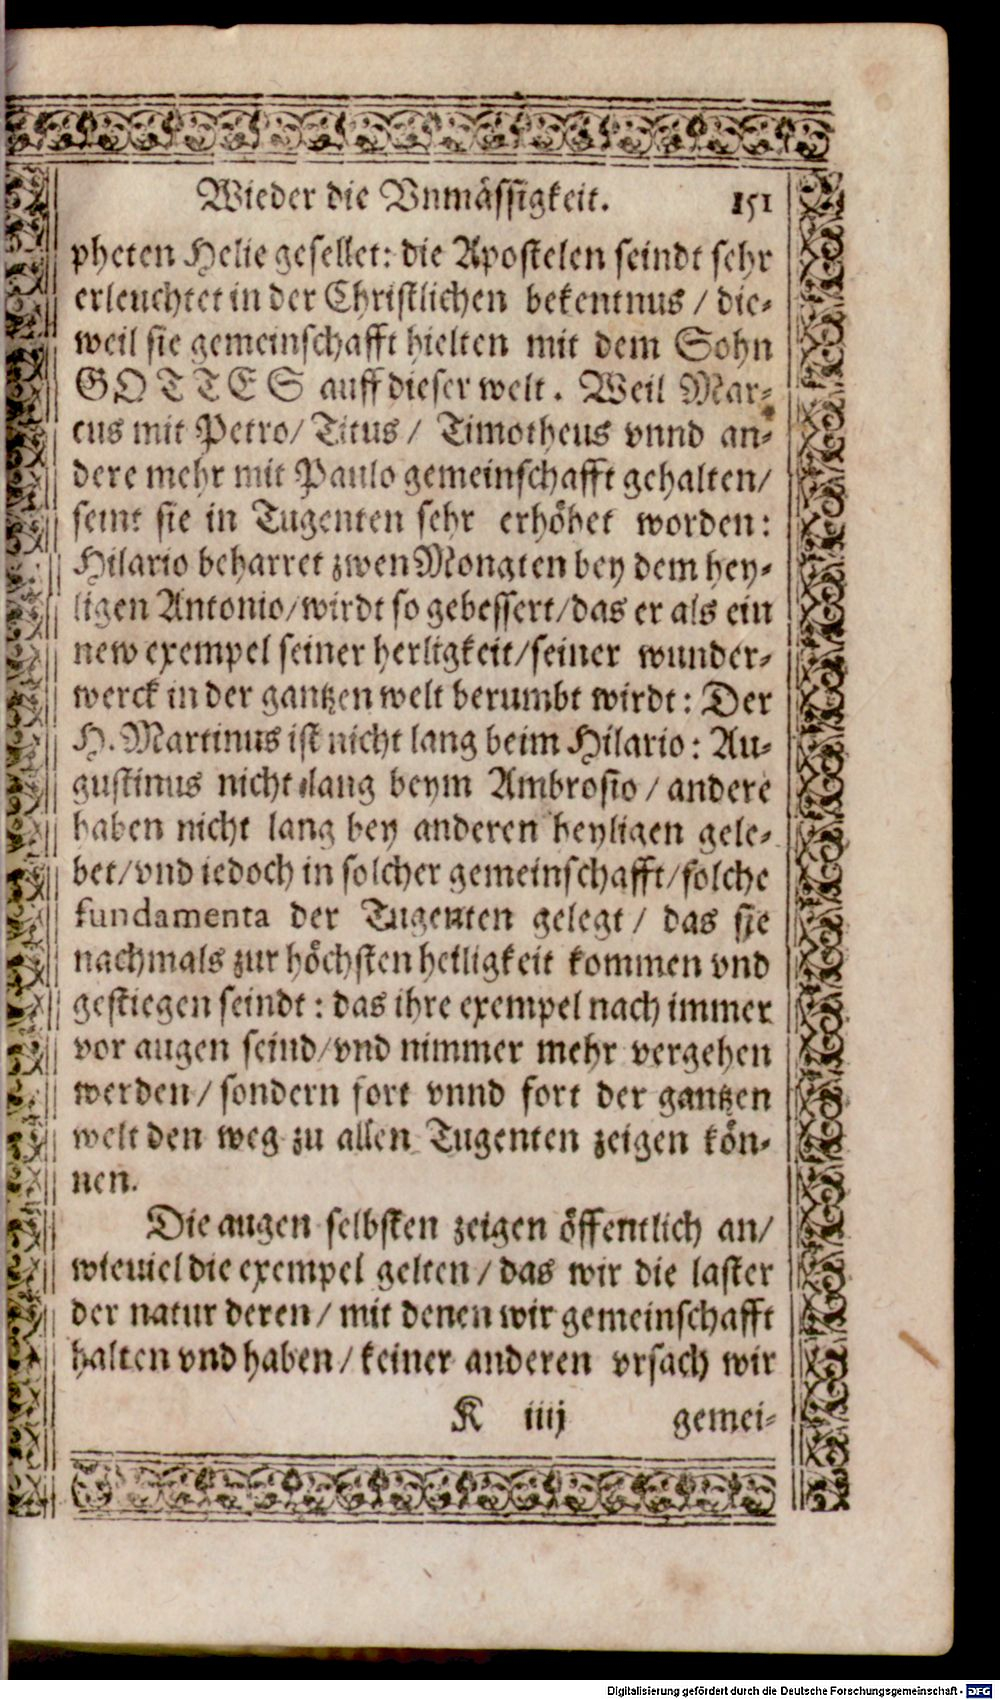 Wieder die Vnmässigkeit. 151
pheten Helie gesellet: die Apostelen seindt sehr
erleuchtet in der Christlichen bekentnus / die-
weil sie gemeinschafft hielten mit dem Sohn
GOTTES auff dieser welt. Weil Mar-
cus mit Petro/ Titus / Timotheus vnnd an-
dere mehr mit Paulo gemeinschafft gehalten/
seint sie in Tugenten sehr erhöhet worden:
Hilario beharret zwen Monaten bey dem hey-
ligen Antonio/wirdt so gebessert/das er als ein
new exempel seiner herligkeit/seiner wunder-
werck in der gantzen welt berumbt wirdt: Der
H. Martinus ist nicht lang beim Hilario: Au-
gustinus nicht lang beym Ambrosio / andere
haben nicht lang bey anderen heyligen gele-
bet/vnd iedoch in solcher gemeinschafft/solche
fundamenta der Tugenten gelegt / das sie
nachmals zur höchsten heiligkeit kommen vnd
gestiegen seindt: das ihre exempel nach immer
vor augen seind/vnd nimmer mehr vergehen
werden / sondern fort vnnd fort der gantzen
welt den weg zu allen Tugenten zeigen kön-
nen.
Die augen selbsten zeigen öffentlich an/
wieuiel die exempel gelten / das wir die laster
der natur deren / mit denen wir gemeinschafft
halten vnd haben / keiner anderen vrsach wir
K iiij gemei-
Digitalisierung gefördert durch die Deutsche Forschungsgemeinschaft - DFG